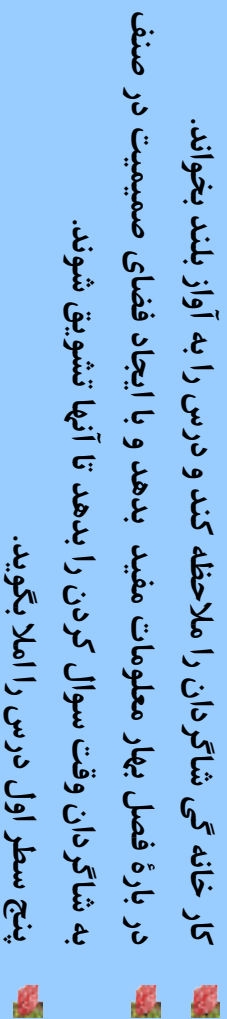 کار خانه گی شاگردان را ملاحظه کند و درس را به آواز بلند بخواند.
در بارهٔ فصل بهار معلومات مفید بدهد و با ایجاد فضای صمیمیت در صنف
به شاگردان وقت سوال کردن را بدهد تا آنها تشویق شوند.
پنج سطر اول درس را املا بگوید.